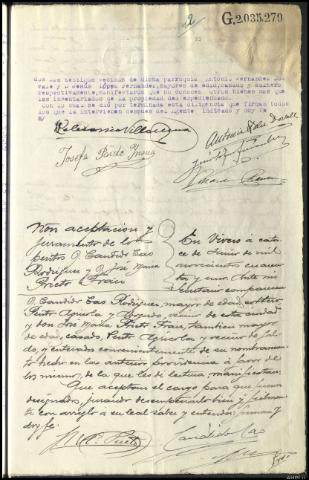 12
G.2.035,279
dos los testigos vecinos de dicha parroquia Antonio Fernandez Do-
vale y Jesús López Fernández, mayores de edad, casado y soltero
respectivamente, manifestaron que no conocen otros bienes mas que
los inventariados de la propiedad del expedientado.
Con lo cual se dió por terminada esta diligencia que firman todos
los que la intervienen despues del Agente indicado y doy fe
Josefa Pardo
Antonio
Non aceptacion y
juramento de los
peritos D. Candido Cao
Rodriguez y D. José Maria
Prieto Fraiz
En Vivero á cator-
ce de Junio de mil
novecientos cuaren-
ta y uno. Ante mi
Secretario comparecen
D. Candido Cao Rodriguez, mayor de edad, soltero,
Perito Agricola y Abogado, vecino de esta ciudad
y don José Maria Prieto Fraiz, tambien mayor
de edad, casado, Perito Agricola y vecino de
y enterados convenientemente de su nombramien-
to hecho en las anterior providencia á favor de
los mismos, de la que les di lectura, manifiestan:
Que aceptan el cargo para que fueron
designados, jurando desempeñarlo bien y fielmen-
te con arreglo á su leal saber y entender, firman y
doy fe.
J. Mª Prieto
Candido Cao